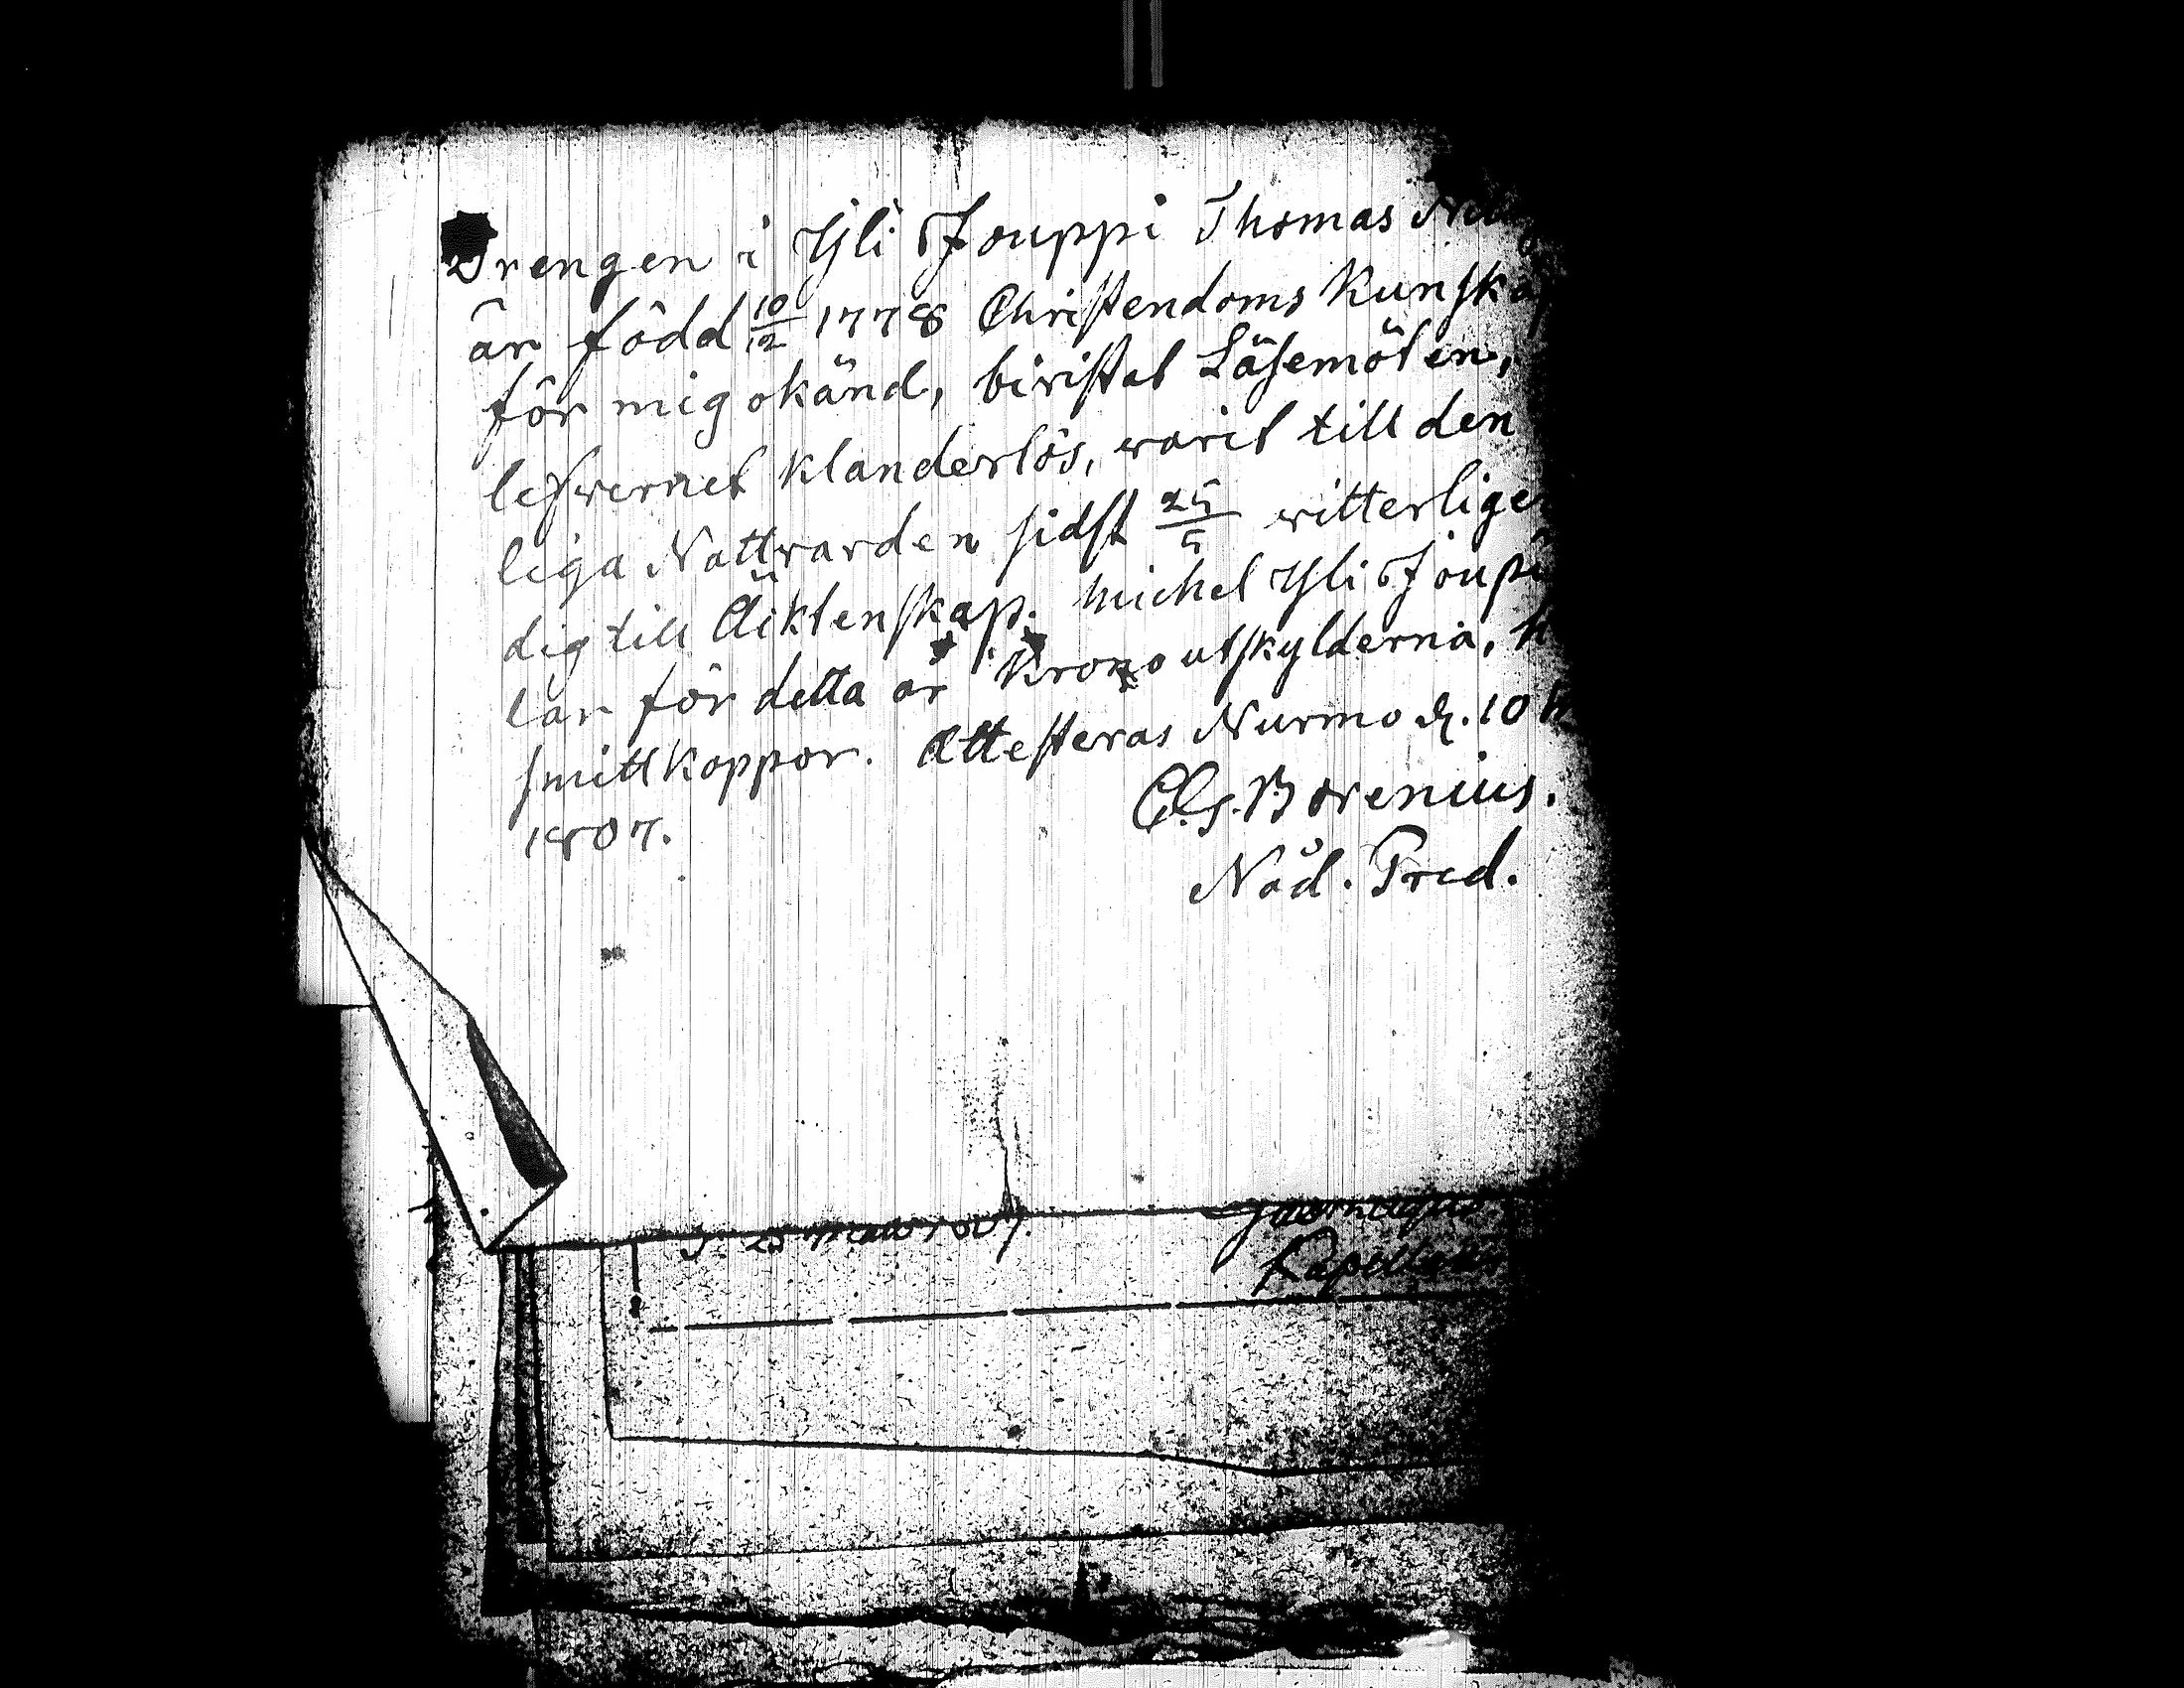 Drengen i Yli Jouppi Thomas
är född 10/12 1778 Christendoms Kunska
för mig okänd, biristat Läsemöten,
lefvernet klanderlös, warit till den
liga Nattvarden sidst 25/5 witterlige
dig till Äiktenskap. Michel Yli Joupi
lar för detta år Krono utskylderna, h
smittkoppor. Attesteras Nurmo d. 10
1807.
C. G. Borenius.
Nåd. Pred.
1807.